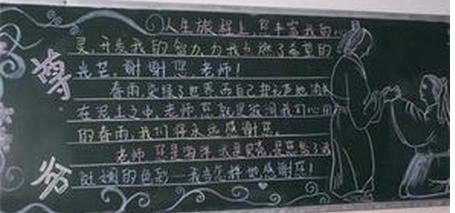 尊师
人生旅程上,您丰富我的心
灵,开发我的智力,为我点燃了希望的
光芒,谢谢您,老师!
春雨,染绿了世界,而自己却无声地消
在泥土之中。老师,您就是滋润我们心田
的春雨,我们将永远感谢您。
老师,您是海洋,我是贝壳,是您给了我
斑斓的色彩…我当怎样地感谢您!